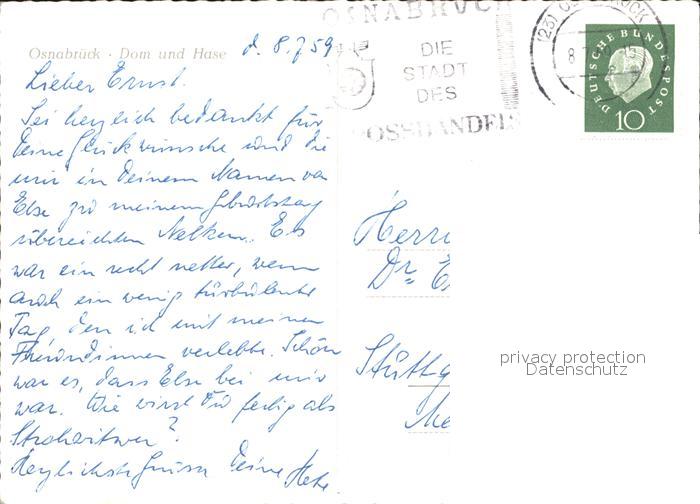 Osnabrück · Dom und Hase
d. 8.7.59
Lieber Ernst.
Sei herzlich bedankt für
Deine Glückwünsche und die
mir in Deinem Namen von
Else zu meinem Geburtstag
überreichten Nelken. Es
war ein recht netter, wenn
auch ein wenig turbulenter
Tag den ich mit meinen
Freundinnen verlebte. Schön
war es, dass Else bei mir
war. Wie wirst Du fertig als
Strohwitwer?
Herzlichste Grüsse Deine
OSNABRÜCK
DIE
STADT
DES
GROSSHANDELS
DEUTSCHE BUNDESPOST
10
Herrn
Dr. E
Stuttg
privacy protection
Datenschutz